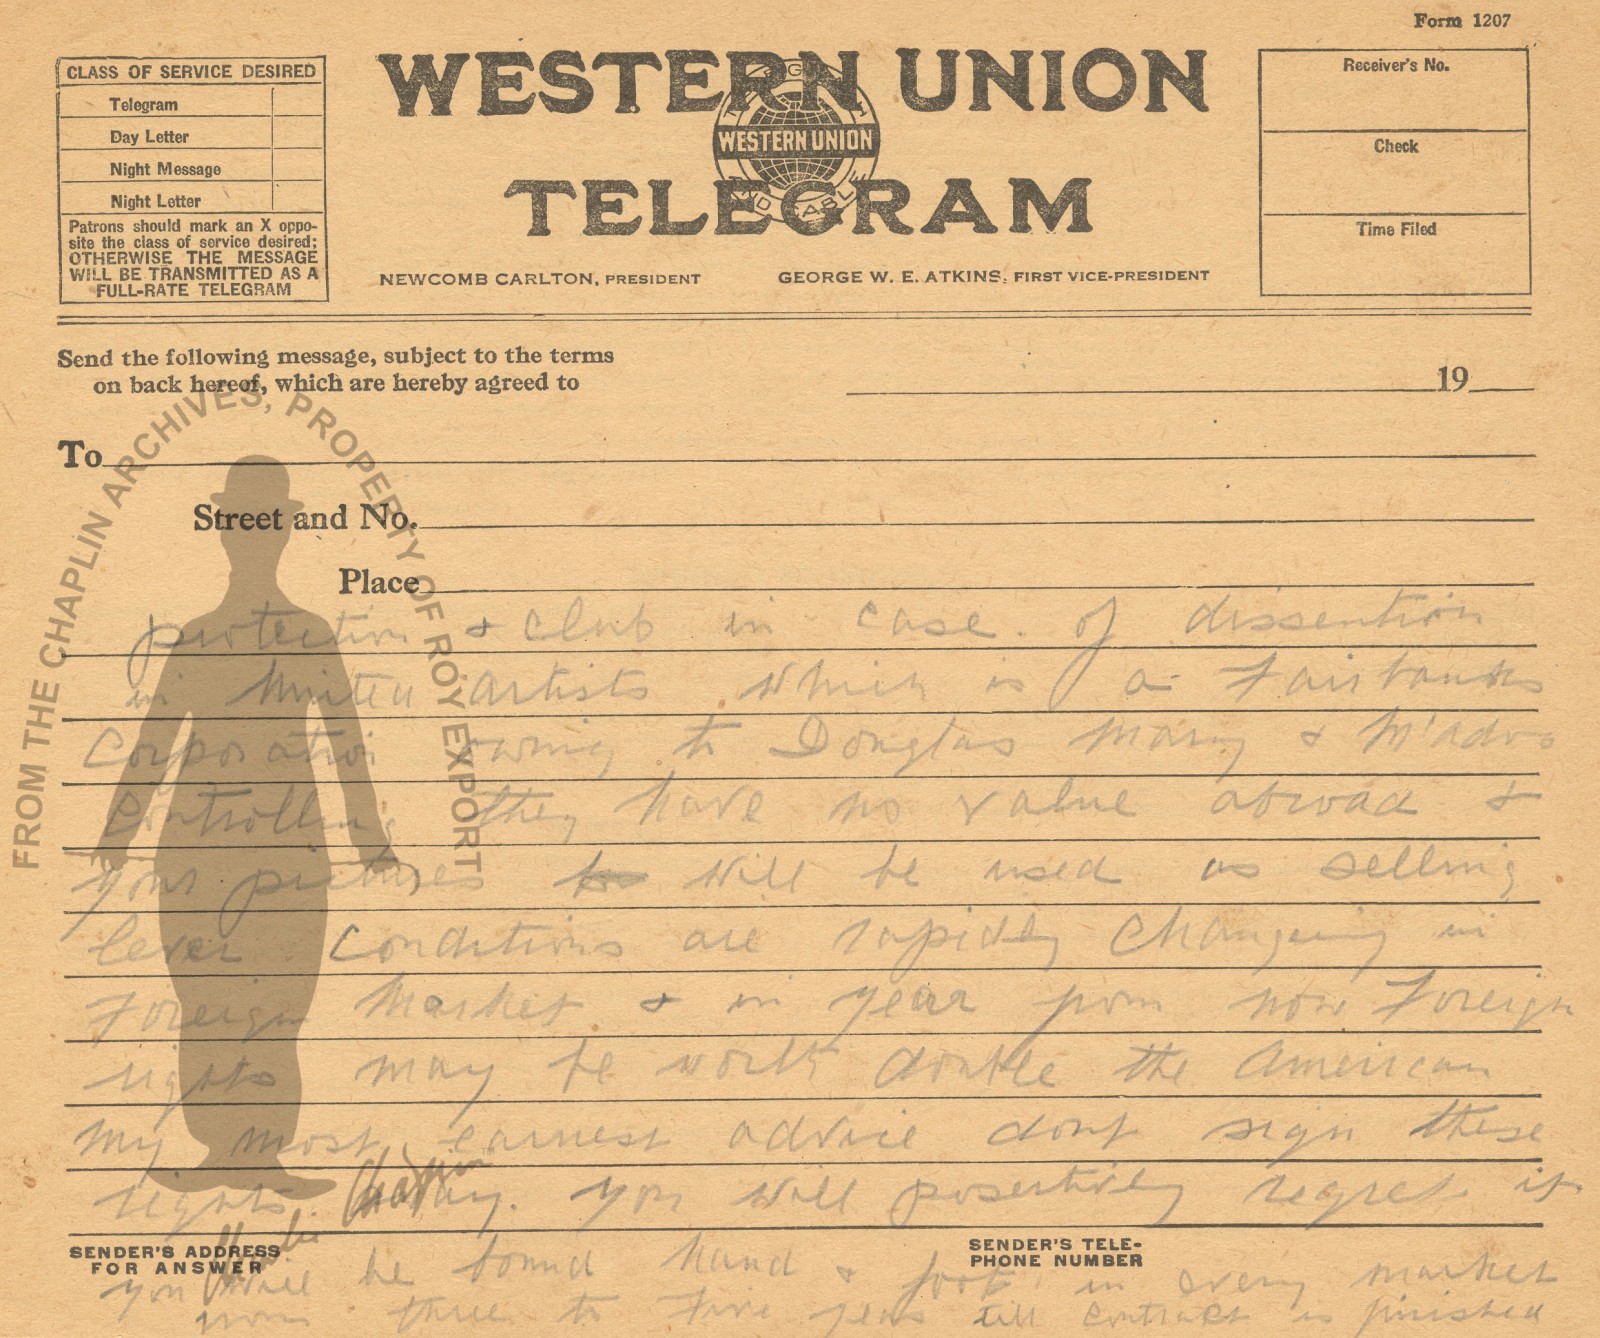 Form 1207
CLASS OF SERVICE DESIRED
Telegram
Day Letter
Night Message
Night Letter
Patrons should mark an X oppo-
site the class of service desired;
OTHERWISE THE MESSAGE
WILL BE TRANSMITTED AS A
FULL-RATE TELEGRAM
WESTERN UNION
WESTERN UNION
TELEGRAM
NEWCOMB CARLTON, PRESIDENT
GEORGE W. E. ATKINS, FIRST VICE-PRESIDENT
Receiver's No.
Check
Time Filed
Send the following message, subject to the terms
on back hereof, which are hereby agreed to
19
To
Street and No.
Place
FROM THE CHAPLIN ARCHIVES, PROPERTY OF ROY EXPORT
protection & club in case. of dissention
in United Artists which is a Fairbanks
Corporation owning to Douglas Mary & M'adoo
Controlling they have no value abroad &
your pictures will be used as selling
lever Conditions are rapidly changeing in
Foreign Market & in year from now Foreign
rights may be worth double the American
My most earnest advice dont sign these
rights away. you will posertively regret it
Charlie Chaplin
SENDER'S ADDRESS
FOR ANSWER
SENDER'S TELE-
PHONE NUMBER
you will be bound hand & foot in every market
from three to five years till contract is finished